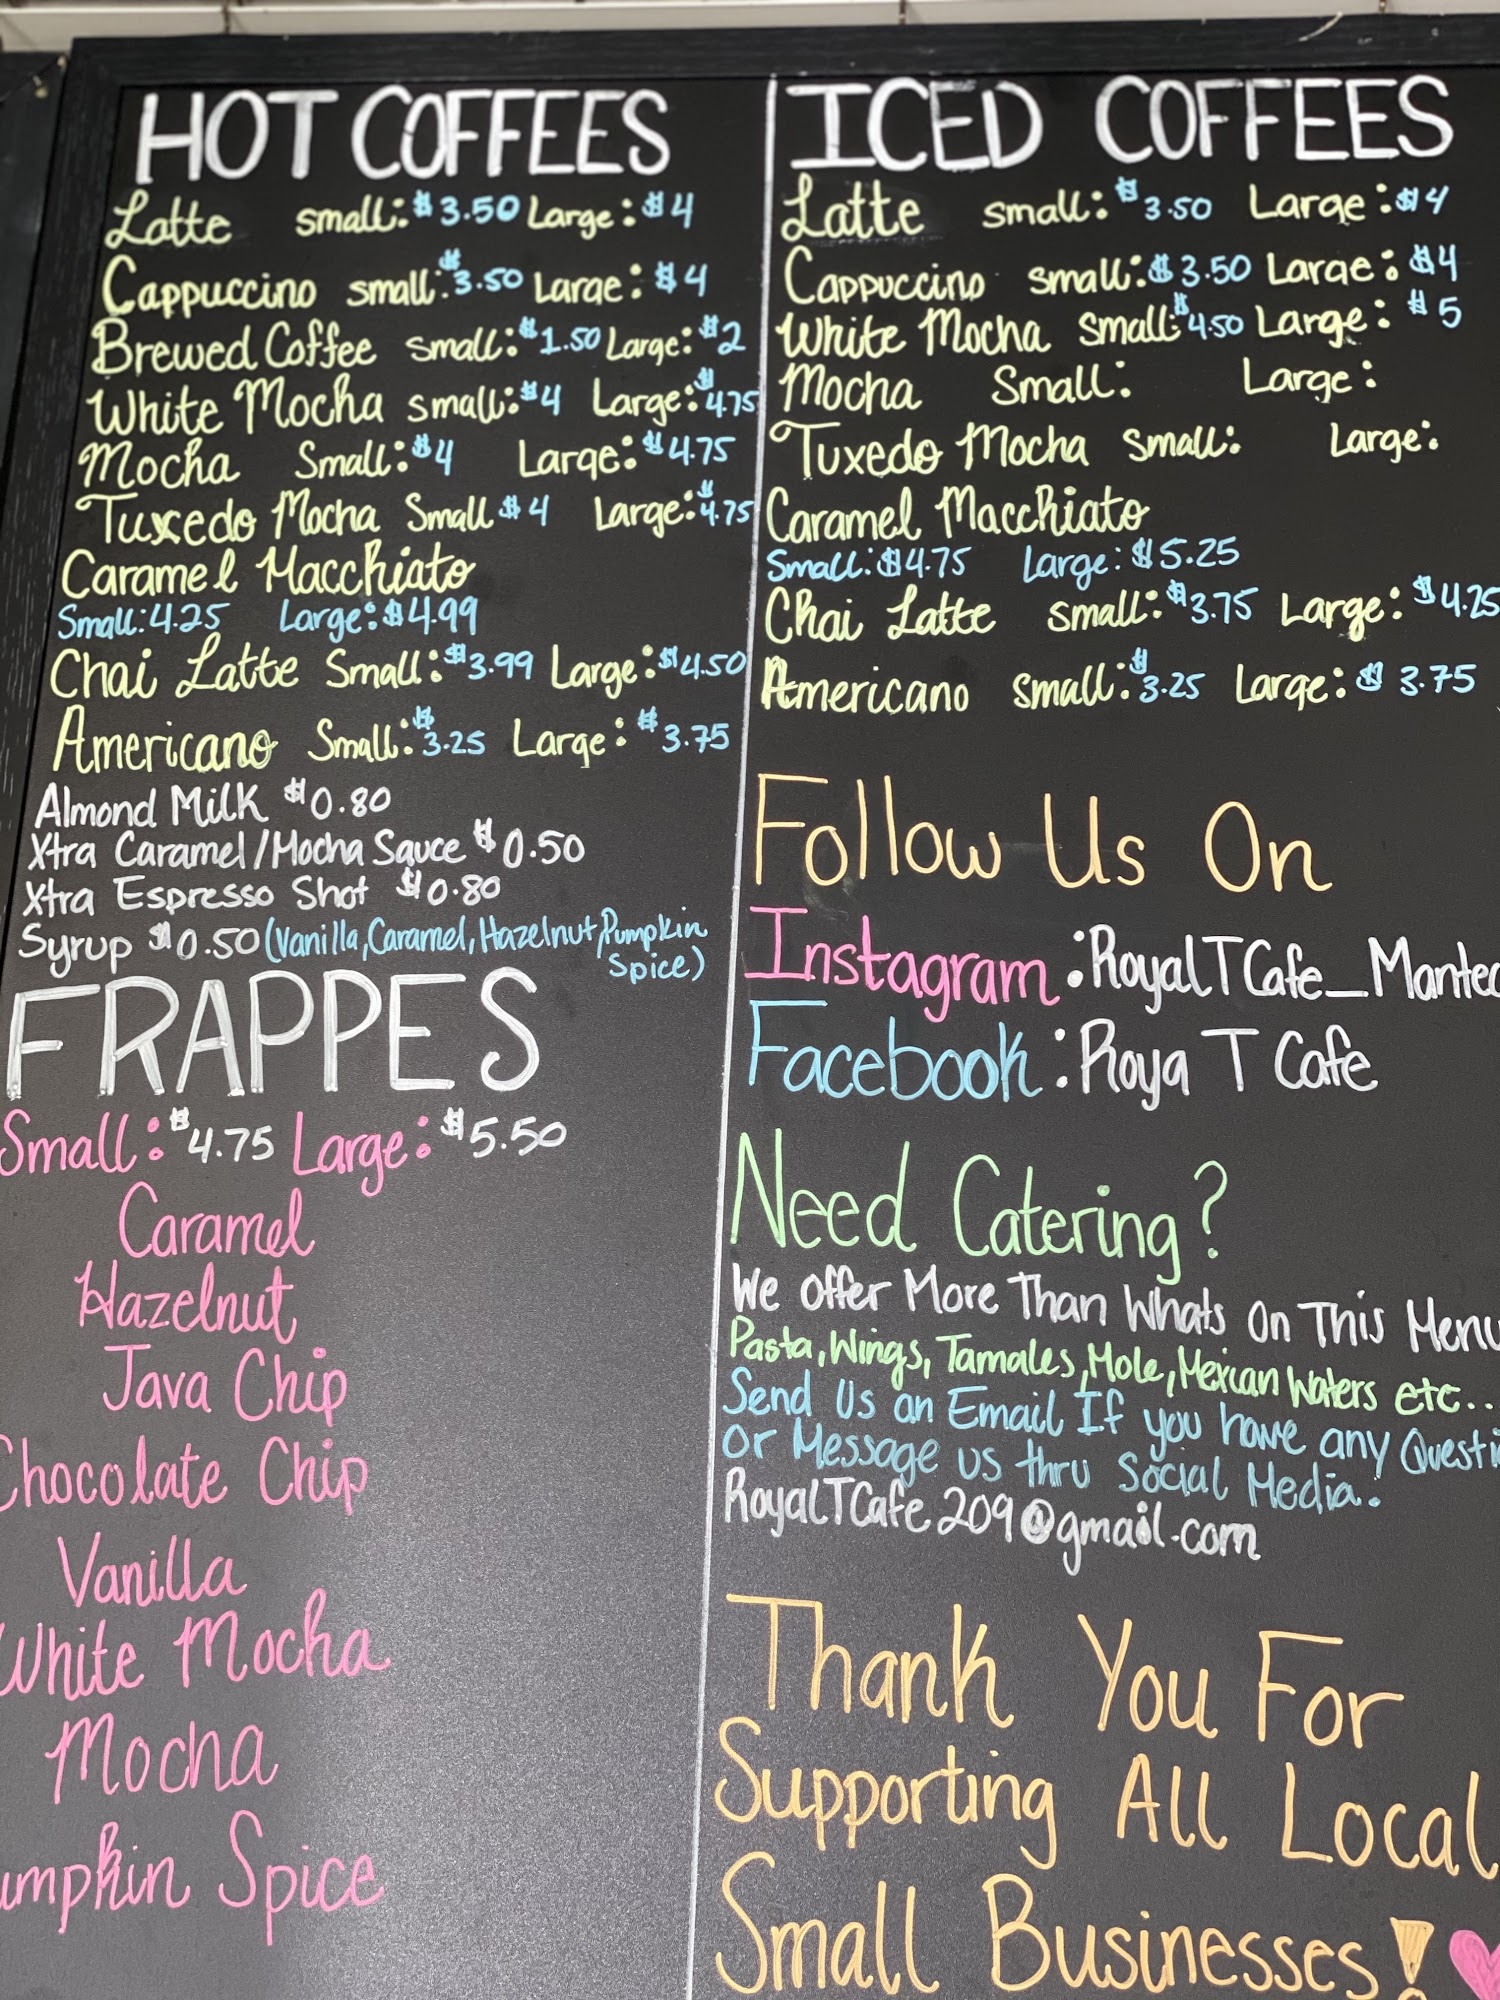 HOT COFFEES
Latte small: $3.50 Large: $4
Cappuccino small: $3.50 Large: $4
Brewed Coffee small: $1.50 Large: $2
White Mocha small: $4 Large: $4.75
Mocha Small: $4 Large: $4.75
Tuxedo Mocha Small $4 Large: $4.75
Caramel Macchiato
Small: 4.25 Large: $4.99
Chai Latte Small: $3.99 Large: $4.50
Americano Small: $3.25 Large: $3.75
Almond Milk $0.80
Xtra Caramel/Mocha Sauce $0.50
Xtra Espresso Shot $0.80
Syrup $0.50 (Vanilla, Caramel, Hazelnut, Pumpkin
Spice)
FRAPPES
Small: $4.75 Large: $5.50
Caramel
Hazelnut
Java Chip
Chocolate Chip
Vanilla
White Mocha
Mocha
umpkin Spice
ICED COFFEES
Latte small: $3.50 Large: $4
Cappuccino small: $3.50 Large: $4
White Mocha Small: $4.50 Large: $5
Mocha Small: Large:
Tuxedo Mocha Small: Large:
Caramel Macchiato
Small: $4.75 Large: $5.25
Chai Latte small: $3.75 Large: $4.25
Americano Small: $3.25 Large: $3.75
Follow Us On
Instagram: RoyalTCafe_Mantec
Facebook: Roya T Cafe
Need Catering?
We Offer More Than Whats On This Menu
Pasta, Wings, Tamales, Mole, Mexican Waters etc...
Send Us an Email If you have any Questi
or Message us thru Social Media.
RoyalTCafe209@gmail.com
Thank You For
Supporting All Local
Small Businesses!